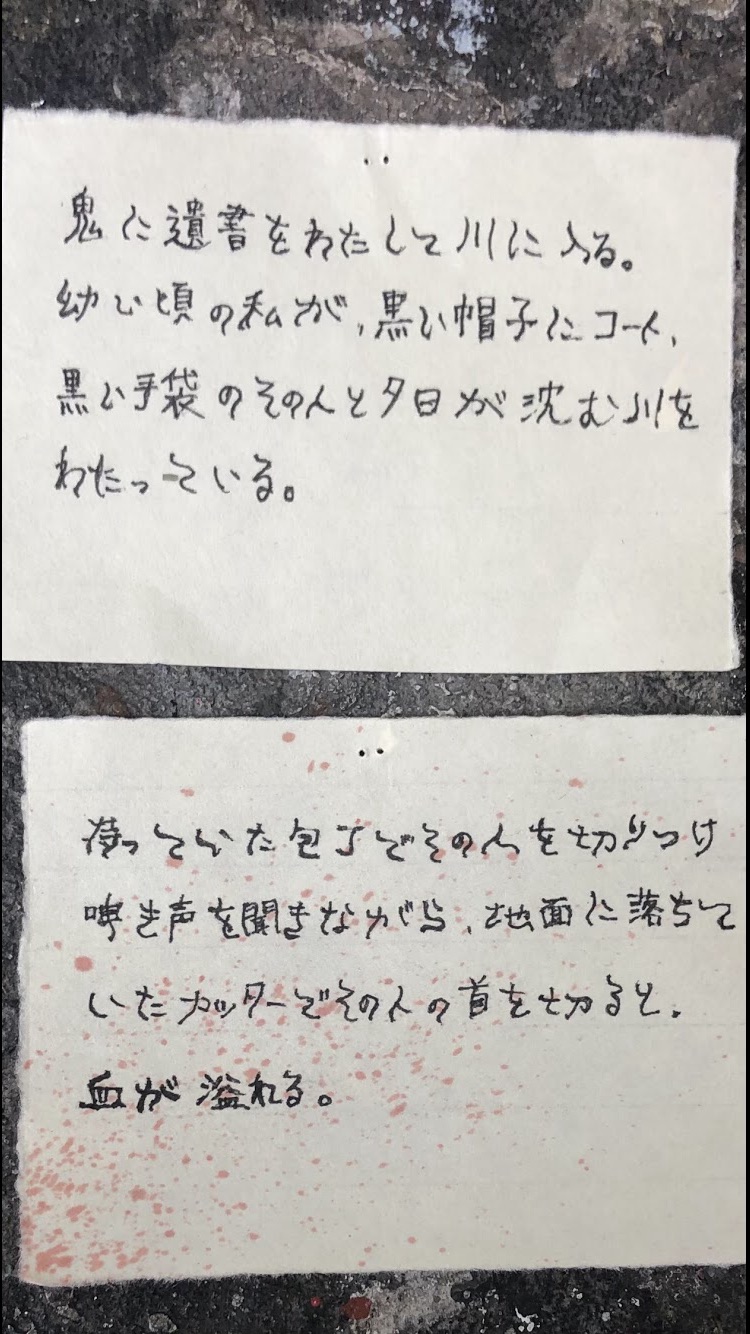 鬼に遺書をわたして川に入る。
幼い頃の私が、黒い帽子にコート、
黒い手袋のその人と夕日が沈む川を
わたっている。
持っていた包丁でその人を切りつけ
呻き声を聞きながら、地面に落ちて
いたカッターでその人の首を切ると、
血が溢れる。